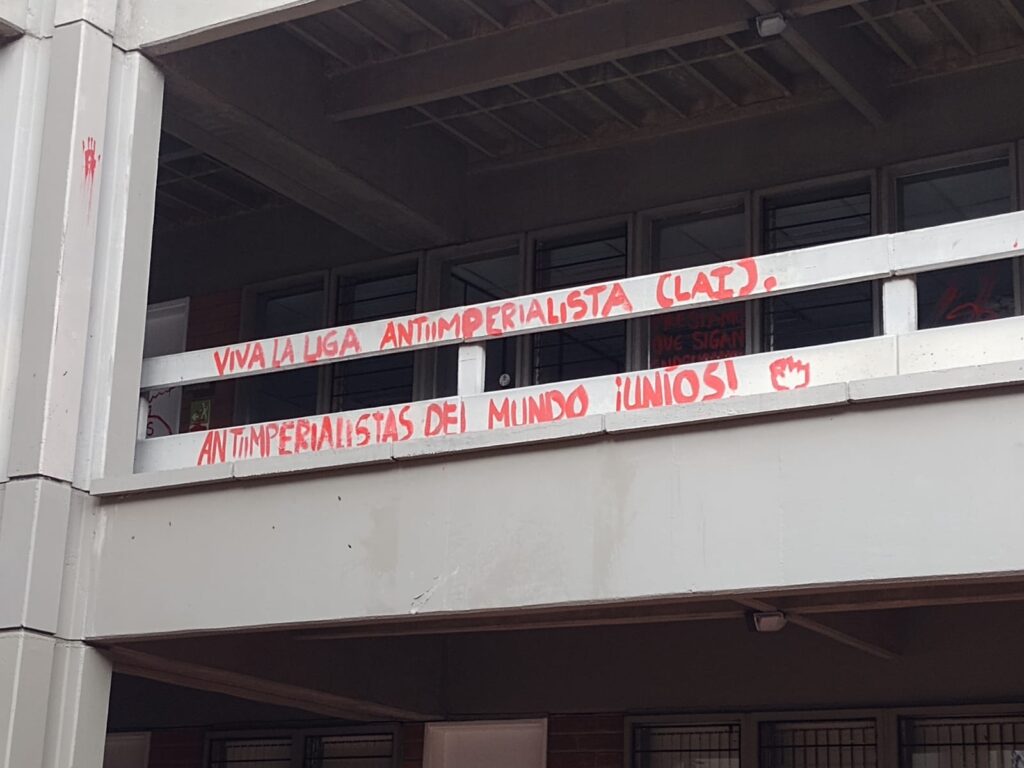 VIVA LA LIGA ANTIIMPERIALISTA (LAI).
ANTIIMPERIALISTAS DEL MUNDO ¡UNÍOS!
QUE SIGAN